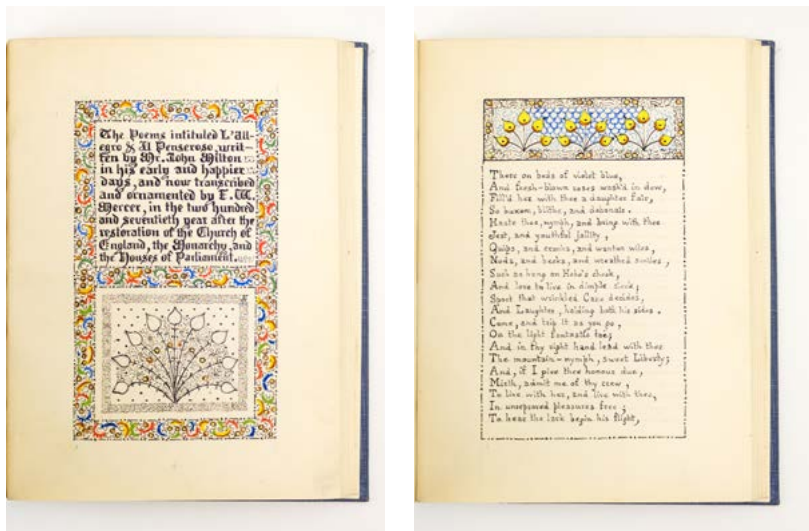 The Poems intituled L'All-
egro & Il Penseroso, writ-
ten by Mr. John Milton
in his early and happier
days, and now transcribed
and ornamented by F. W.
Mercer, in the two hundred
and seventieth year after the
restoration of the Church of
England, the Monarchy, and
the Houses of Parliament.
There on beds of violet blue,
And fresh-blown roses wash'd in dew,
Fill'd her with thee a daughter fair,
So buxom, blithe, and debonair.
Haste thee, nymph, and bring with thee
Jest, and youthful jollity,
Quips, and cranks, and wanton wiles,
Nods, and becks, and wreathed smiles,
Such as hang on Hebe's cheek,
And love to live in dimple sleek;
Sport that wrinkled Care derides,
And Laughter, holding both his sides.
Come, and trip it as you go,
On the light fantastic toe;
And in thy right hand lead with thee
The mountain-nymph, sweet Liberty;
And, if I give thee honour due,
Mirth, admit me of thy crew,
To live with her, and live with thee,
In unreproved pleasures free;
To hear the lark begin his flight,